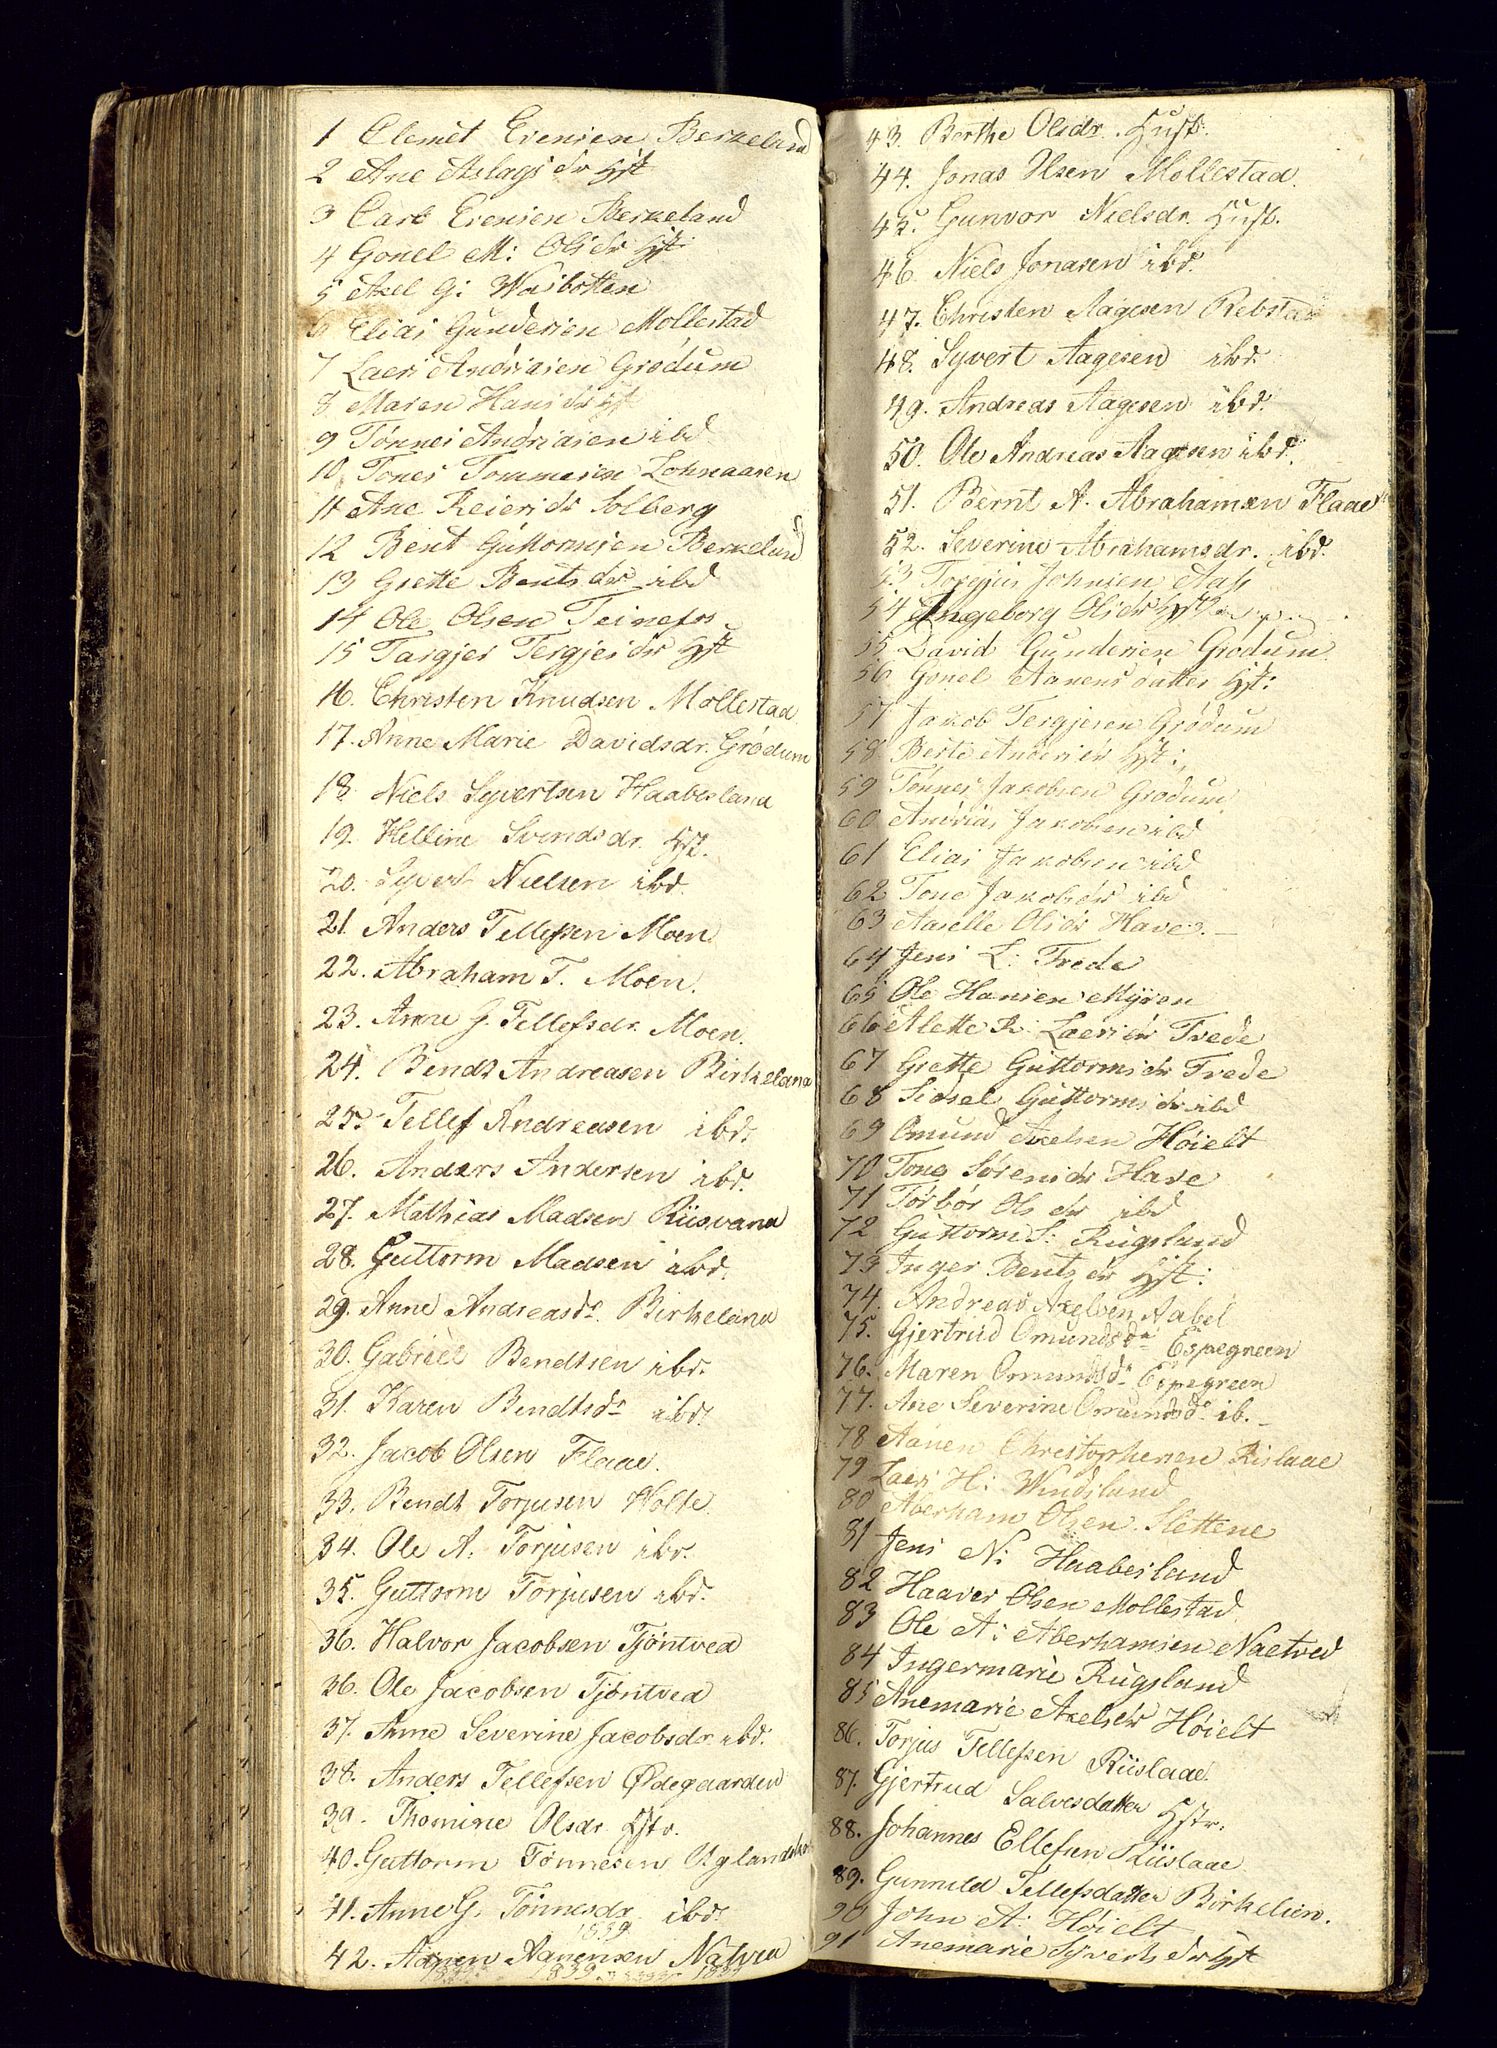 1 Clemet Evensen Berkeland
2 Ane Aslagsdr Hst
3 Carl Evensen Berkeland
4 Gonel M: Olsdr Hst
5 Axel G: Waibotten
6 Elias Gundersen Mollestad
7 Laers Andriasen Grødum
8 Maren Hansdr Hst
9 Tønnes Andriasen ibd
10 Tones Tommesen Lohnaasen
11 Ane Reiersdr Solberg
12 Bent Guttormsen Berkeland
13 Grette Bentsdr ibd
14 Ole Olsen Teinefos
15 Targjer Tergjersdr Hst
16. Christen Knudsen Mollestad
17. Anne Marie Davidsdr. Grødum
18. Niels Syvertsen Haabesland
19. Helline Svendsdr. Hst.
20. Syvert Nielsen ibd.
21. Anders Tellefsen Moen.
22. Abraham T. Moen.
23. Anne G. Tellefsdr. Moen.
24. Bendt Andreasen Birkeland
25. Tellef Andreasen ibd.
26. Anders Andersen ibd.
27. Mathias Madsen Riisvand
28. Guttorm Madsen ibd.
29. Anne Andreasdr. Birkeland
30. Gabriel Bendtsen ibd.
31. Karen Bendtsdr ibd.
32. Jacob Olsen Flaae.
33. Bendt Torjusen Holte.
34. Ole A. Torjusen ibd.
35. Guttorm Torjusen ibd.
36. Halvor Jacobsen Tjøntved
36. Ole Jacobsen Tjøntved
37. Anne Severine Jacobsdr. ibd.
38. Anders Tellefsen Ødegaarden
39. Thomine Olsdr. Hstr.
40. Guttorm Tønnesen
41. Anne G. Tønnesdr. ibd.
1839
42. Aanen Aanensen Natved
1839
43. Berthe Olsdr. Hust.
44. Jonas Olsen Mollestad.
45. Gunvor Nielsdr. Hust.
46. Niels Jonasen ibd.
47. Christen Aagesen Rebstad
48. Syvert Aagesen ibd.
49. Andreas Aagesen ibd.
50. Ole Andreas Aagesen ibd.
51. Bernt A. Abrahamsen Flaae
52. Severine Abrahamsdr. ibd.
53 Torgjus Johnsen Aass
54 Ingeborg Olsdr Hst
55 David Gundersen Grodum
56 Gonel Aanensdatter Hst:
57 Jakob Tergjesen Grødum
58 Berte Andersdr Hst:
59 Tønnes Jakobsen Grodum
60 Andrias Jakobsen ibd
61 Elias Jakobsen ibd
62 Tone Jakobsdr ibd
63 Aaselle Olsdr Have.
64 Jens L: Trede
65 Ole Hansen Myren
66 Alette K: Laersdr Trede
67 Grette Guttormsdr Trede
68 Sidsel Guttormsdr ibd
69 Omund Axelsen Høielt
70 Tone Sørensdr Have
71 Torbor Olsdr ibd
72 Guttorm S: Rugsland
73 Inger Bentsdr Hst:
74. Andreas Axelsen Aabel
75. Gjertrud Omundsdr Espegreen
76. Maren Omundsdr Espegreen
77. Ane Severine Omundsdr ib.
78 Aanen Christophersen Rislaae
79 Laers H: Windsland
80 Aberham Olsen Slettene
81 Jens N: Haabesland
82 Haaver Olsen Mollestad
83 Ole A: Aberhamsen Naetved
84 Ingermarie Rugsland
85 Anemarie Axelsdr Høielt
86. Torjus Tellefsen Riislaae.
87. Gjertrud Salvesdatter Hstr.
88. Johannes Ellefsen Riislaae
89. Gunnild Tellefsdatter Birkelien.
90 John A: Høielt
91 Anemarie Syvertsdr Hst